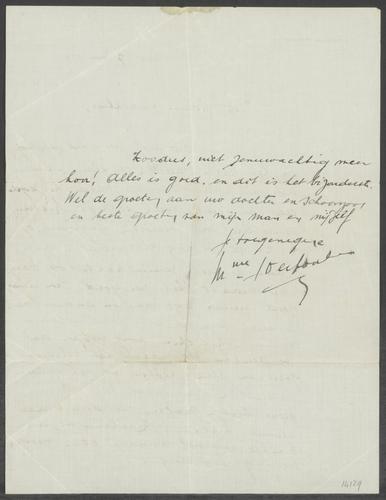 Zoodus, niet zenuwachtig meer
hoor! Alles is goed, en dit is het bizonderste.
Wel de groeten aan uw dochter en schoonzoon
en beste groeten van mijn man en mijzelf
je toegenegene
Mme
14129